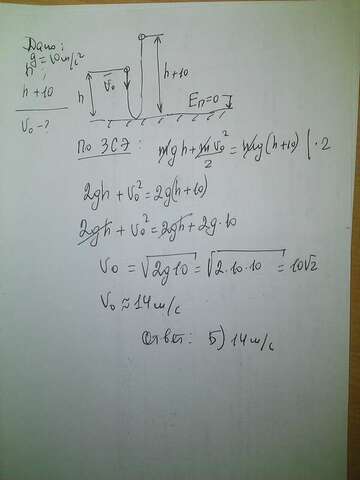 Дано:
g = 10 м/с²
h;
h+10
V₀ - ?
h
V₀
h+10
Eп=0
По ЗСЭ: mgh + mV₀²/2 = mg(h+10) | · 2
2gh + V₀² = 2g(h+10)
2gh + V₀² = 2gh + 2g·10
V₀ = √2g10 = √2·10·10 = 10√2
V₀ ≈ 14 м/с
Ответ: Б) 14 м/с